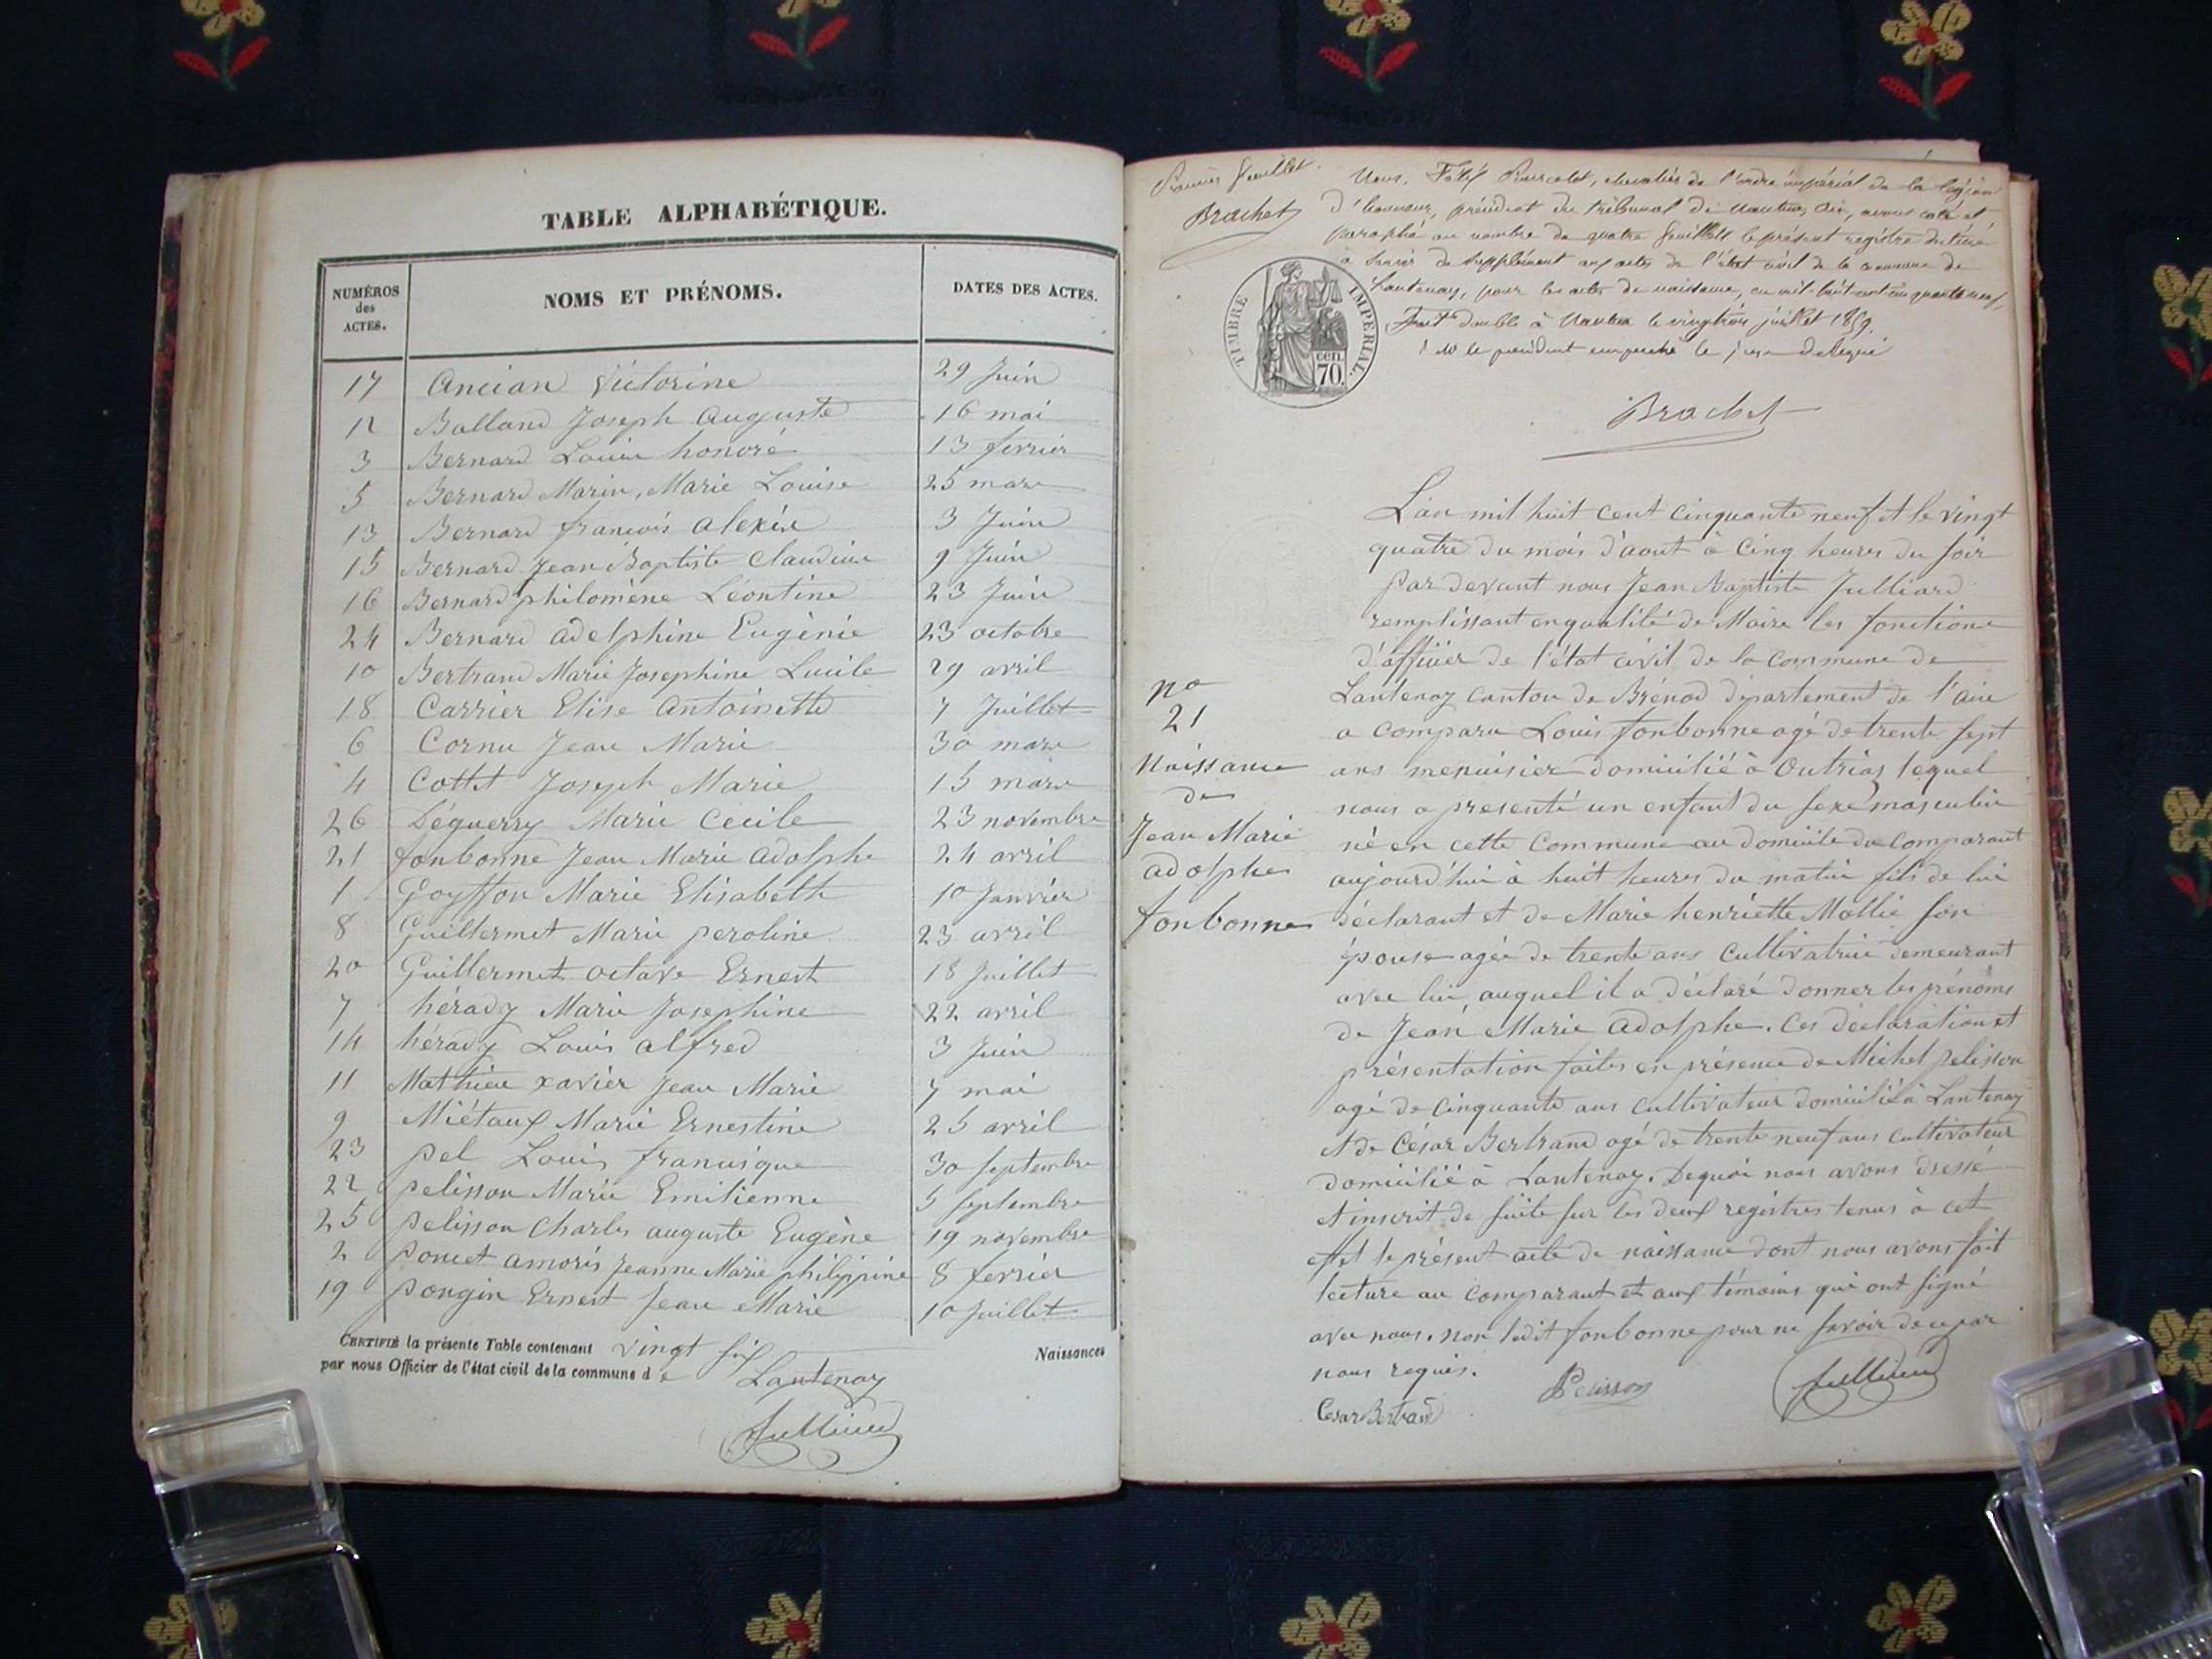 TABLE ALPHABÉTIQUE.
NUMÉROS des ACTES.
NOMS ET PRÉNOMS.
DATES DES ACTES.
17 Ancian Victorine 29 Juin
12 Balland Joseph Auguste 16 mai
3 Bernard Louis honoré 13 fevrier
5 Bernard Marin, Marie Louise 25 mars
13 Bernard françois alexis 3 Juin
15 Bernard Jean Baptiste Claudius 9 Juin
16 Bernard philomène Léontine 23 Juin
24 Bernard adelphine Eugénie 23 octobre
10 Bertrand Marie Josephine Lucile 29 avril
18 Carrier Elise Antoinette 7 Juillet
6 Cornu Jean Marie 30 mars
4 Cottet Joseph Marie 15 mars
26 Déguerry Marie Cecile 23 novembre
21 fonbonne Jean Marie adolphe 24 avril
1 Goyffon Marie Elisabeth 10 Janvier
8 Guillermet Marie peroline 23 avril
20 Guillermet octave Ernest 18 Juillet
7 hérady Marie Josephine 22 avril
14 hérady Louis alfred 3 Juin
11 Mathieu xavier Jean Marie 7 mai
9 Miétaux Marie Ernestine 25 avril
23 pel Louis francisque 30 septembre
22 pelisson Marie Emilienne 5 septembre
25 pelisson Charles auguste Eugène 19 novembre
2 poncet amoris Jeanne Marie philippine 8 fevrier
19 pongin Ernest Jean Marie 10 Juillet
CERTIFIÉ la présente Table contenant vingt six Naissances
par nous Officier de l'état civil de la commune de Lantenay
Julliard
Premier feuillet.
Brachet
Nous, Félix Pourcelot, chevalier de l'ordre impérial de la légion
d'honneur, président du tribunal de Nantua, Ain, avons coté et
paraphé au nombre de quatre feuillets le présent registre destiné
à servir de supplément aux actes de l'état civil de la commune de
Lantenay, pour les actes de naissance, en mil-huit-cent-cinquante neuf,
Fait double à Nantua le vingt trois juillet 1859.
M le président empeché le juge délegué
TIMBRE IMPÉRIAL.
cen. 70.
Brachet
L'an mil huit cent cinquante neuf et le vingt
quatre du mois d'aout à cinq heures du soir
par devant nous Jean Baptiste Julliard
remplissant en qualité de Maire les fonctions
d'officier de l'état civil de la commune de
Lantenay canton de Brénod département de l'ain
a comparu Louis fonbonne agé de trente sept
ans menuisier domicilié à Outriaz lequel
nous a presenté un enfant du sexe masculin
né en cette commune au domicile du comparant
aujourd'hui à huit heures du matin fils de lui
déclarant et de Marie henriette Mollie son
épouse agée de trente ans cultivatrice demeurant
avec lui, auquel il a déclaré donner les prénoms
de Jean Marie adolphe. Ces déclaration et
présentation faites en présence de Michel pelisson
agé de cinquante ans cultivateur domicilié à Lantenay
et de César Bertrand agé de trente neuf ans cultivateur
domicilié à Lantenay. Dequoi nous avons dressé
et inscrit de suite sur les deux registres tenus à cet
effet le présent acte de naissance dont nous avons fait
lecture au comparant et aux témoins qui ont signé
avec nous. non ledit fonbonne pour ne savoir de ce par
nous requis.
César Bertrand
Pelisson
Julliard
no
21
Naissance
de
Jean Marie
adolphe
fonbonne